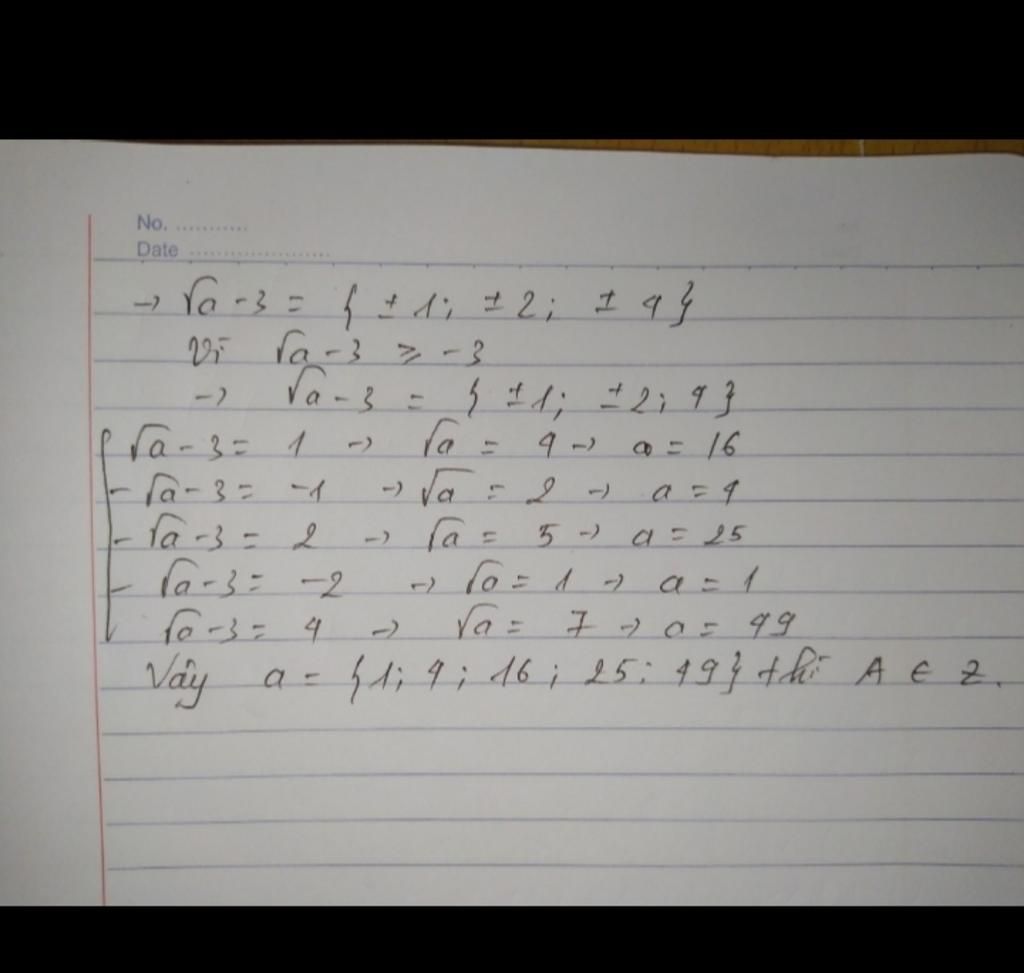 No. ...........
Date .....................
→ √a - 3 = { ± 1; ± 2; ± 4 }
Vì √a - 3 ≥ -3
→ √a - 3 = { ±1; ±2; 4 }
√a - 3 = 1 → √a = 4 → a = 16
- √a - 3 = -1 → √a = 2 → a = 4
- √a - 3 = 2 → √a = 5 → a = 25
- √a - 3 = -2 → √a = 1 → a = 1
√a - 3 = 4 → √a = 7 → a = 49
Vậy a = {1; 4; 16; 25; 49} thì A ∈ Z.